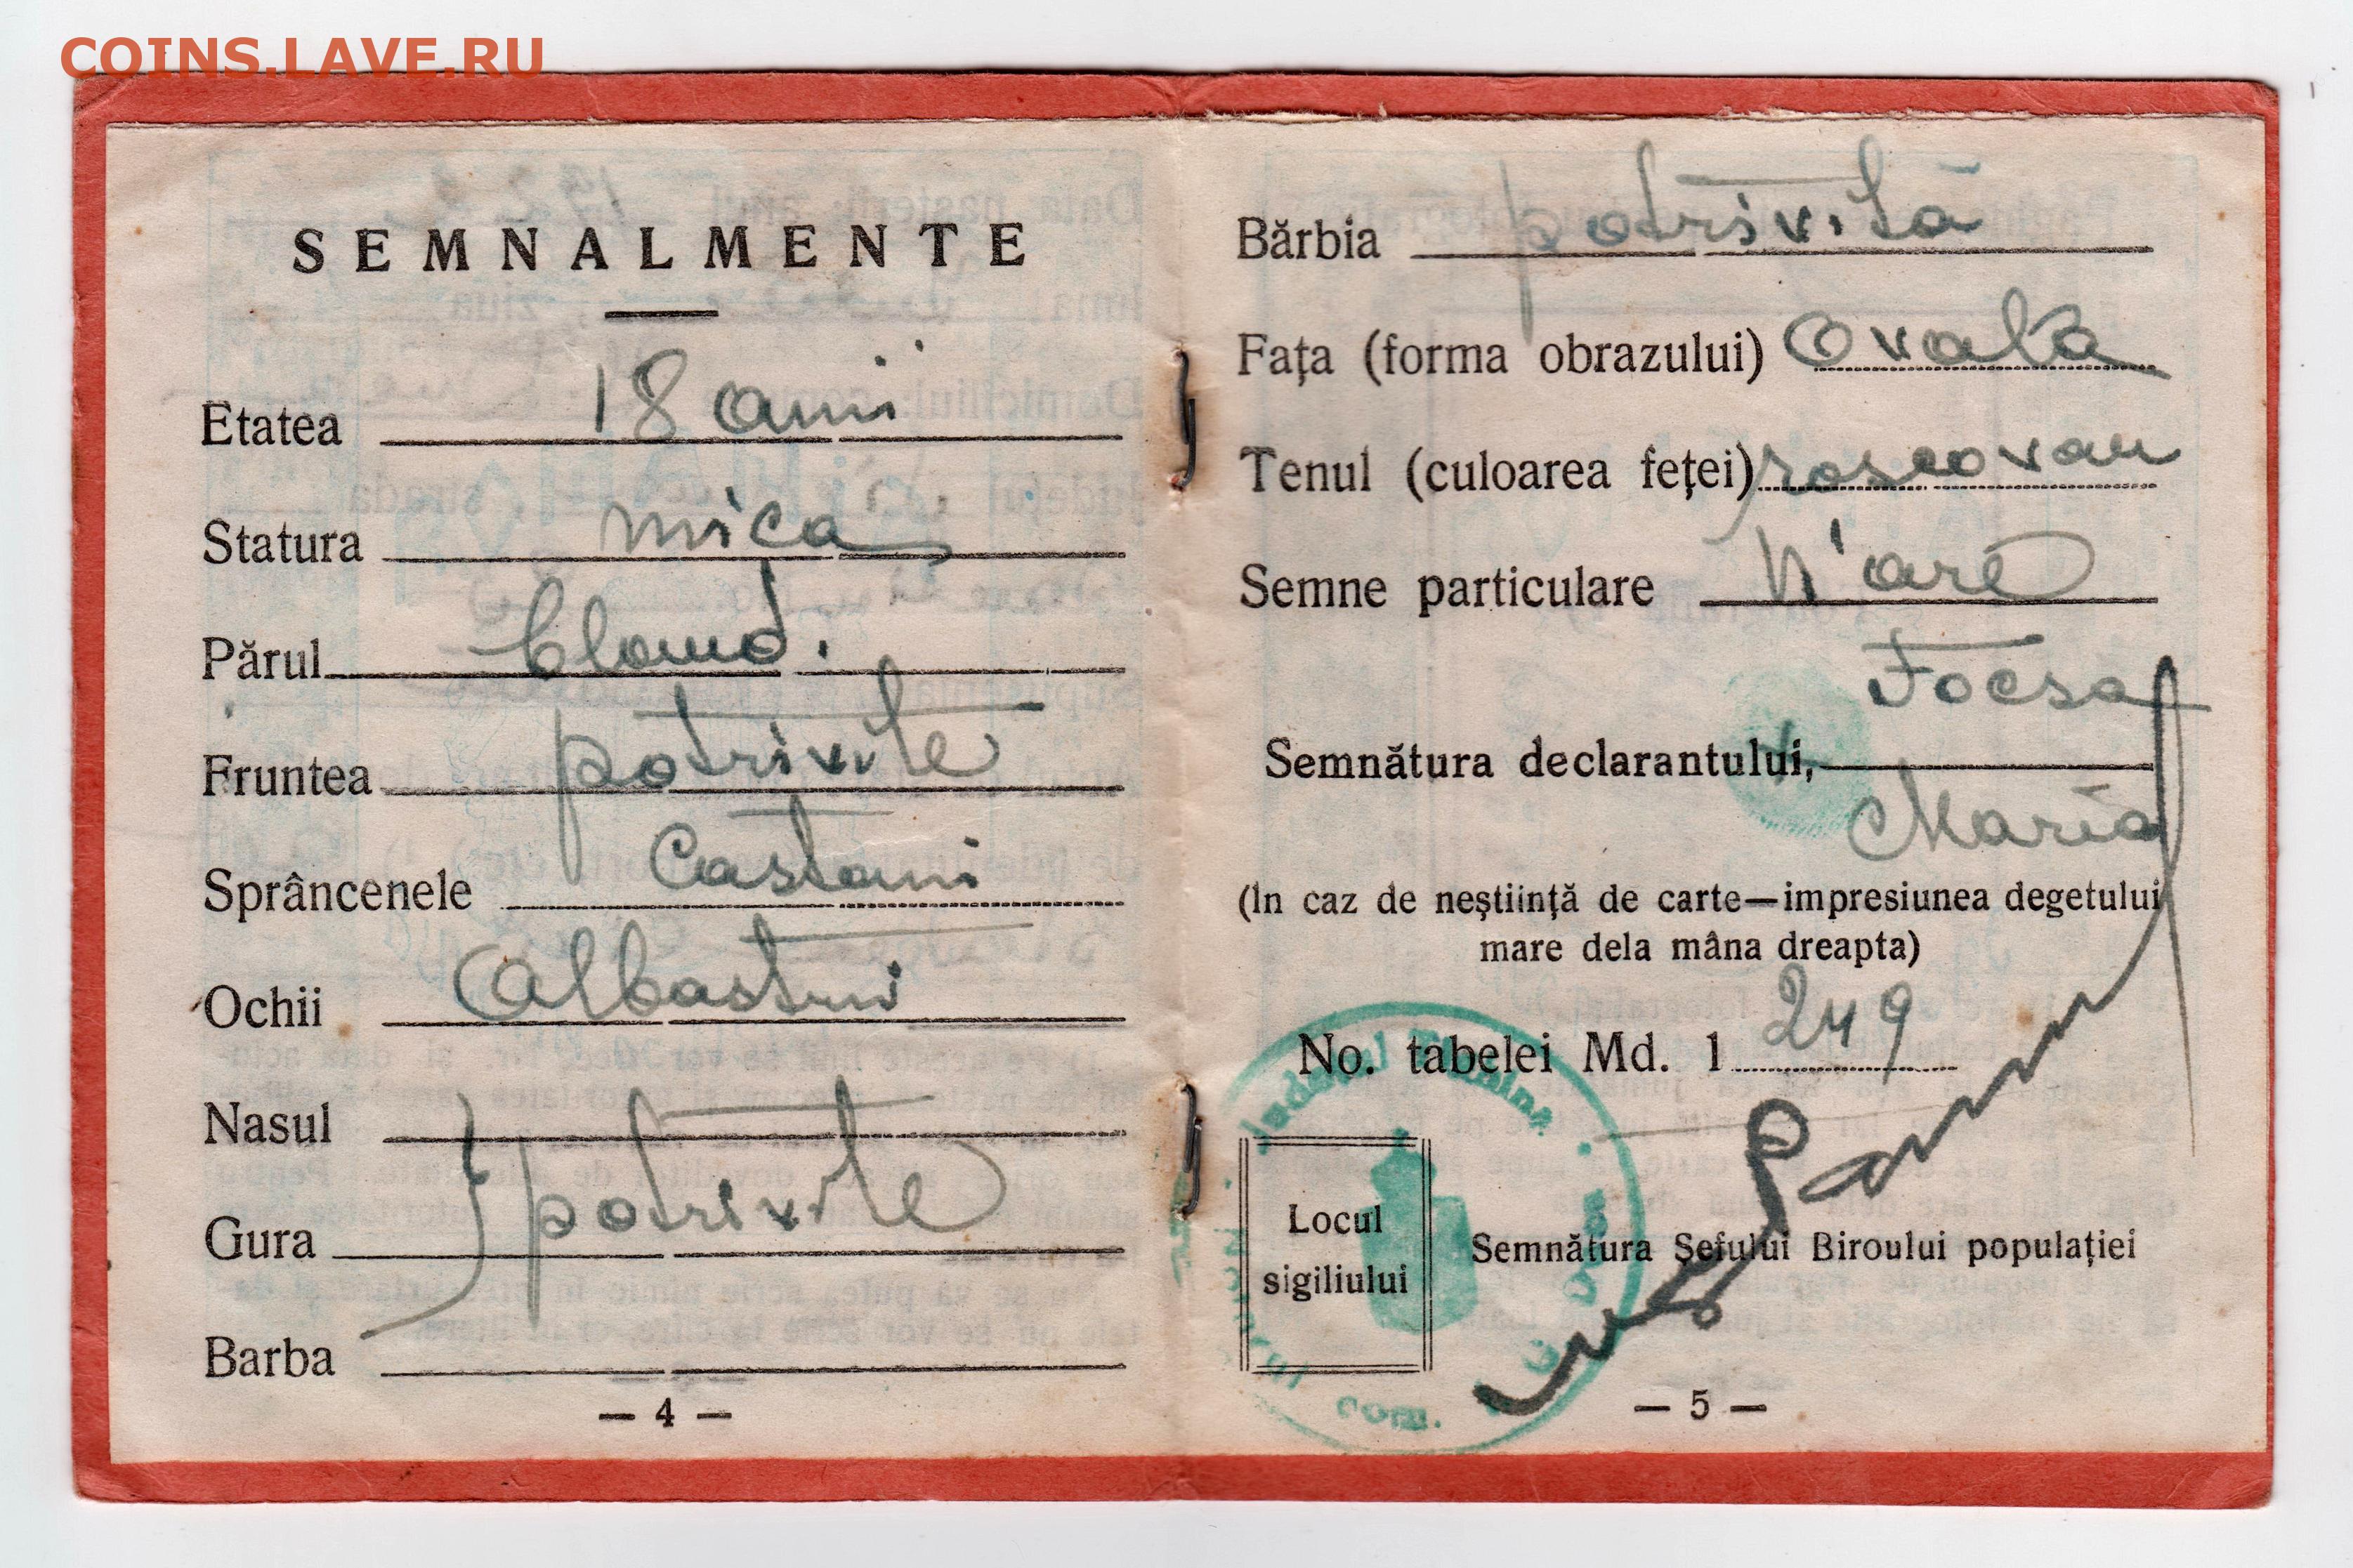 COINS.LAVE.RU
SEMNALMENTE
Etatea 18 ani
Statura mica
Părul blond.
Fruntea potrivite
Sprâncenele Castani
Ochii Albastrii
Nasul
Gura } potrivite
Barba
— 4 —
Bărbia potrivită
Fața (forma obrazului) Ovală
Tenul (culoarea feței) roscovan
Semne particulare N'are
Focsa
Semnătura declarantului,
Maria
(In caz de neștiință de carte—impresiunea degetului
mare dela mâna dreapta)
No. tabelei Md. 1 249
Locul
sigiliului
Semnătura Șefului Biroului populației
Județul
com.
— 5 —